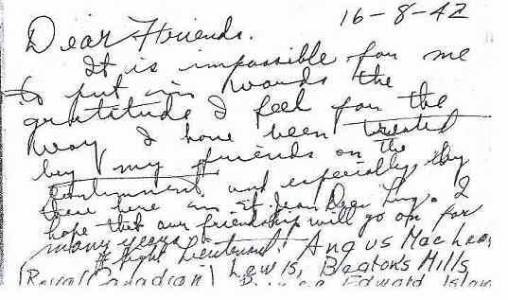 16-8-42
Dear Friends.
It is impossible for me
to put in words the
gratitude I feel for the
way I have been treated
by my friends on the
and especially by
those here in St Jean Luz. I
hope that our friendship will go on for
many years.
Flight Lieutenant Angus MacLean,
Lewis, Beaton's Mills,
(Royal Canadian Edward Island